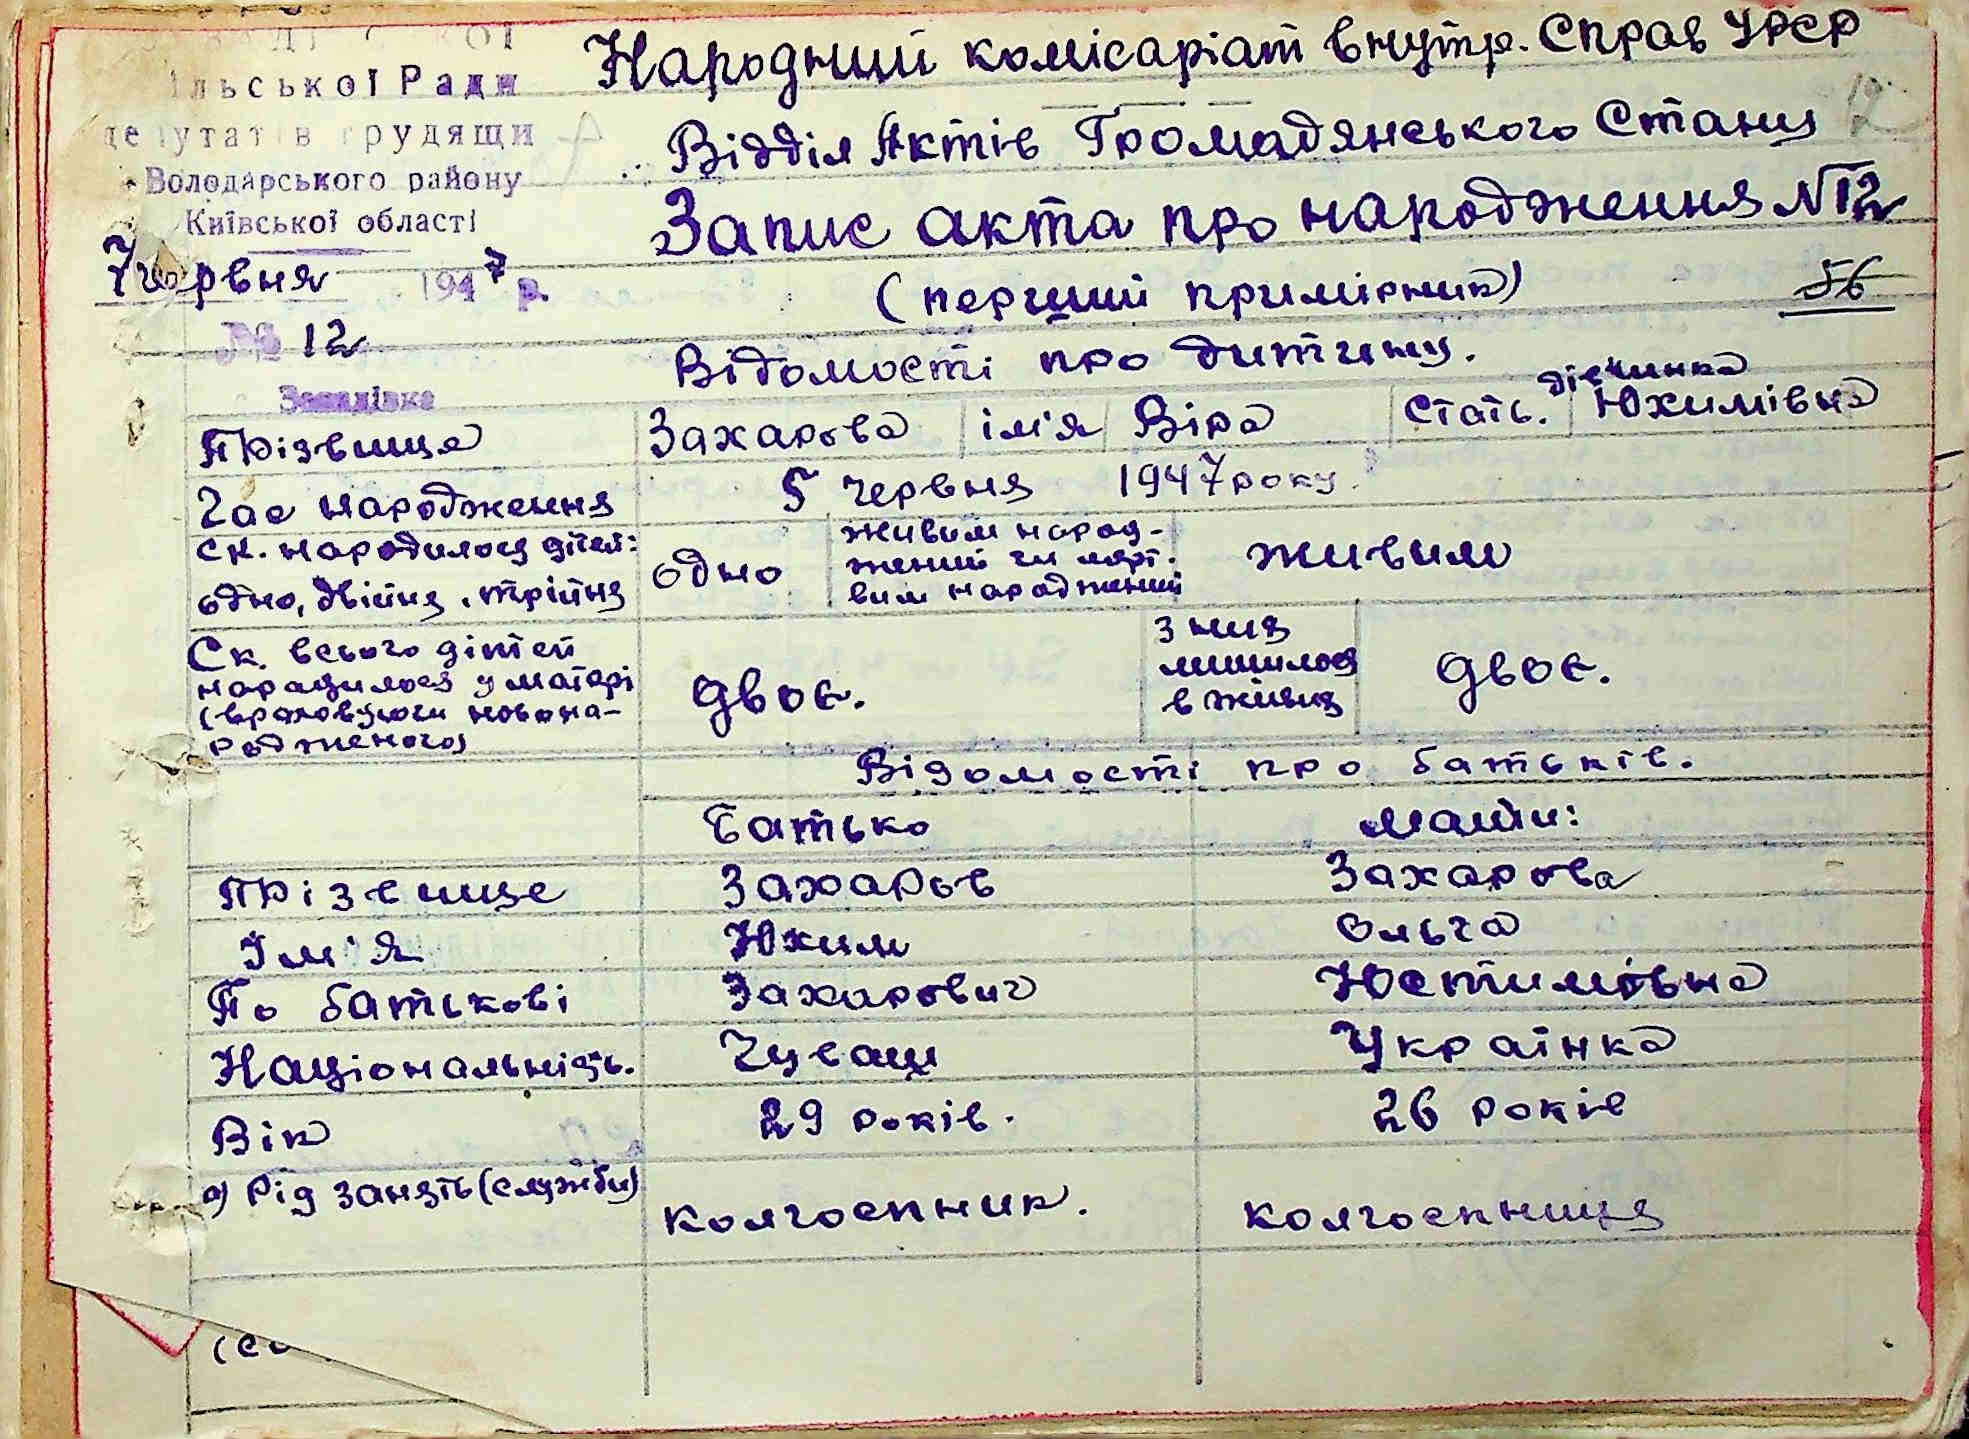 Народний комісаріат внутр. Справ УРСР
Відділ Актів Громадянського Стану
Запис акта про народження №12
(перший примірник)
56
ільської Ради
депутатів трудящи
Володарського району
Київської області
7 червня 1947 р.
№ 12
Відомості про дитину.
Прізвище Захарова ім'я Віра Стать. дівчинка Юхимівна
Час народження 5 червня 1947 року
Ск. народилося дітей: одно, двійня, трійня
одно
живим народжений чи мертвим народжений
живим
Ск. всього дітей народилося у матері (враховуючи новонародженого)
двоє.
з них лишилося в живих
двоє.
Відомості про батьків.
Батько мати:
Прізвище Захаров Захарова
Ім'я Юхим Ольга
По батькові Захарович Юстимівна
Національність. Чуваш Українка
Вік 29 років. 26 років
а) Рід занять (служби) колгоспник. колгоспниця